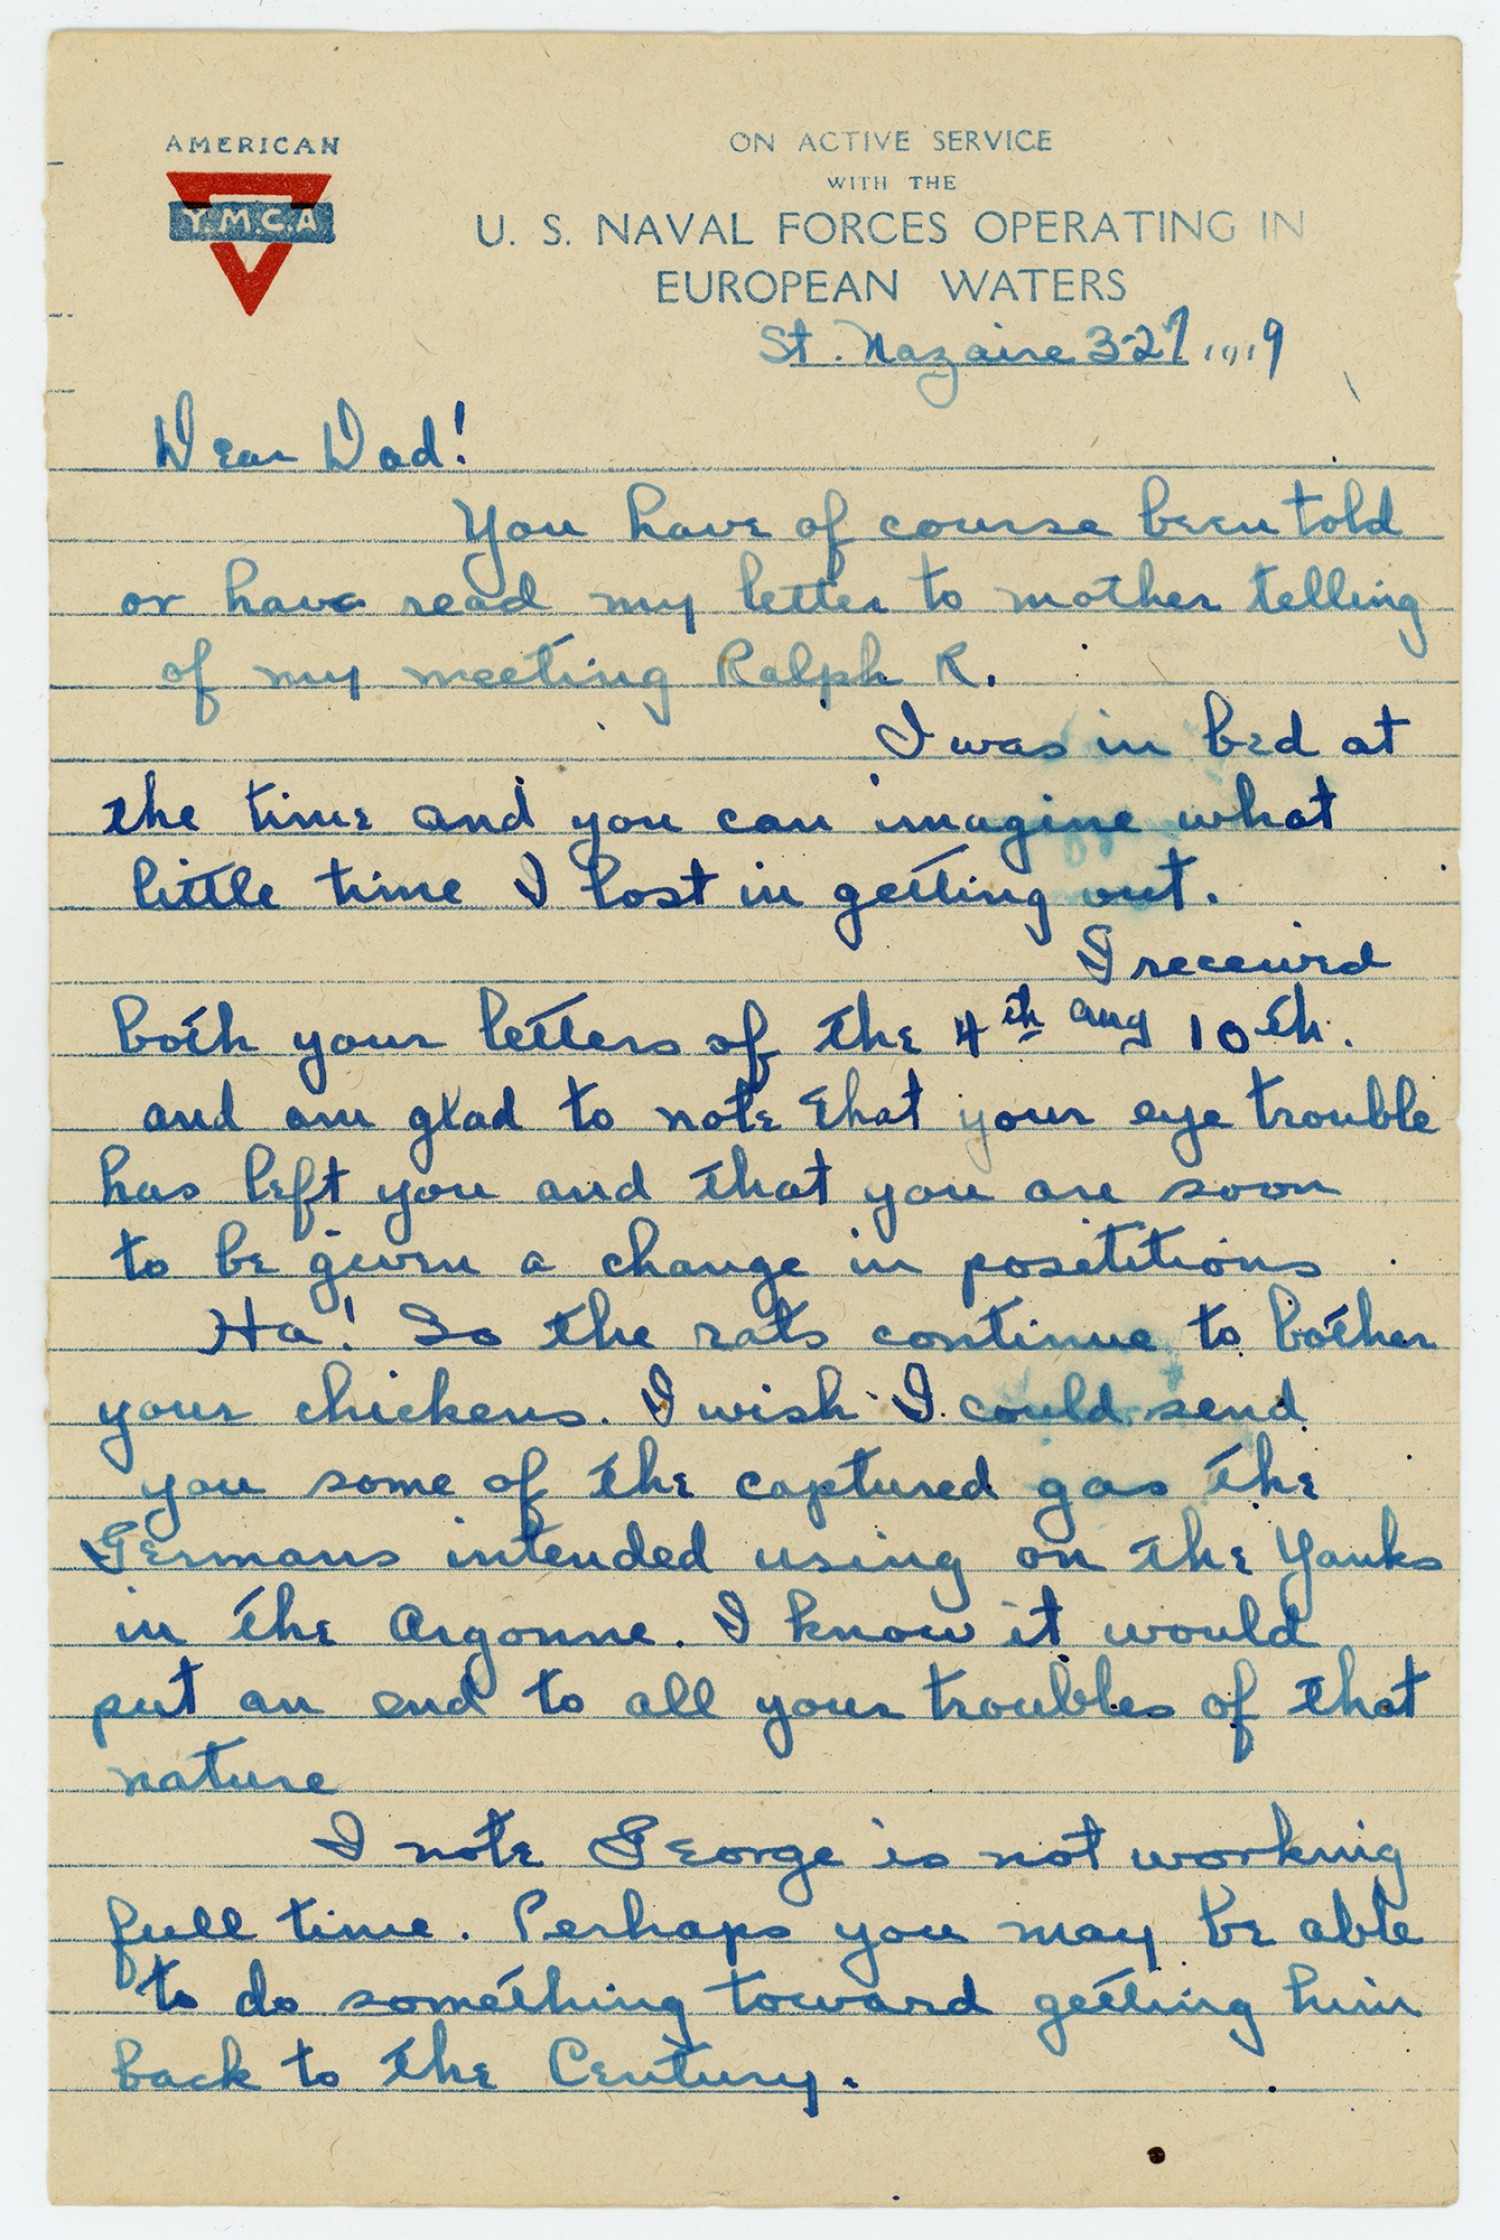 AMERICAN
Y.M.C.A
ON ACTIVE SERVICE
WITH THE
U. S. NAVAL FORCES OPERATING IN
EUROPEAN WATERS
St. Nazaire 3-27 1919
Dear Dad!
You have of course been told
or have read my letter to mother telling
of my meeting Ralph R.
I was in bed at
the time and you can imagine what
little time I lost in getting out.
I received
both your letters of the 4th and 10th.
and am glad to note that your eye trouble
has left you and that you are soon
to be given a change in posititions
Ha! So the rats continue to bother
your chickens. I wish I could send
you some of the captured gas the
Germans intended using on the Yanks
in the Argonne. I know it would
put an end to all your troubles of that
nature
I note George is not working
full time. Perhaps you may be able
to do something toward getting him
back to the Century.